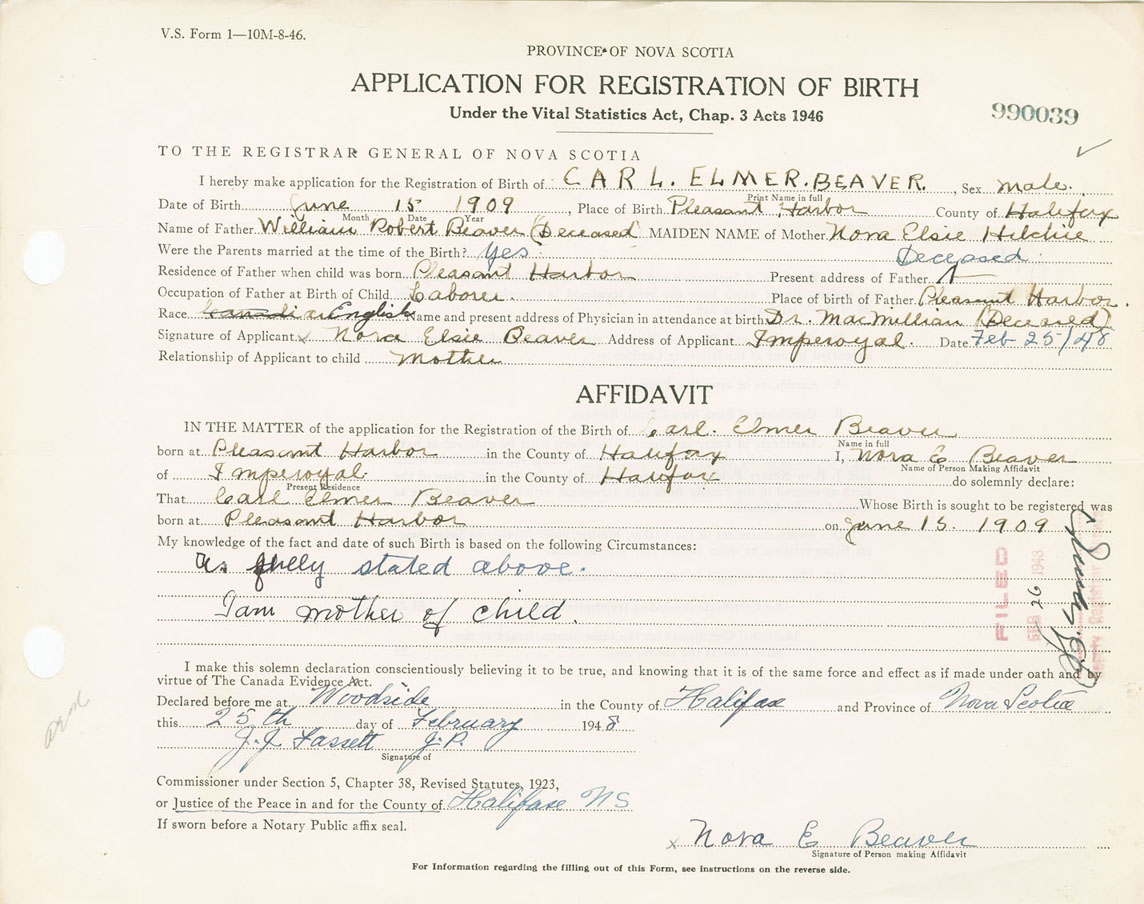 V.S. Form 1—10M-8-46.
PROVINCE OF NOVA SCOTIA
APPLICATION FOR REGISTRATION OF BIRTH
Under the Vital Statistics Act, Chap. 3 Acts 1946
990039
TO THE REGISTRAR GENERAL OF NOVA SCOTIA
I hereby make application for the Registration of Birth of CARL. ELMER. BEAVER. Sex male.
Print Name in full
Date of Birth June 15 1909, Place of Birth Pleasant Harbor County of Halifax
Month Date Year
Name of Father William Robert Beaver (Deceased MAIDEN NAME of Mother Nora Elsie Hilchie
Were the Parents married at the time of the Birth? Yes Deceased
Residence of Father when child was born Pleasant Harbor Present address of Father
Occupation of Father at Birth of Child Laborer. Place of birth of Father Pleasant Harbor.
Race Canadian English Name and present address of Physician in attendance at birth Dr. MacMillian (Deceased)
Signature of Applicant x Nora Elsie Beaver Address of Applicant Imperoyal. Date Feb 25/48
Relationship of Applicant to child Mother
AFFIDAVIT
IN THE MATTER of the application for the Registration of the Birth of Carl. Elmer Beaver
Name in full
born at Pleasant Harbor in the County of Halifax I, Nora E. Beaver
Name of Person Making Affidavit
of Imperoyal in the County of Halifax do solemnly declare:
Present Residence
That Carl Elmer Beaver Whose Birth is sought to be registered was
born at Pleasant Harbor on June 15. 1909
My knowledge of the fact and date of such Birth is based on the following Circumstances:
As fully stated above.
I am mother of child.
FILED
FEB 26 1948
I make this solemn declaration conscientiously believing it to be true, and knowing that it is of the same force and effect as if made under oath and by
virtue of The Canada Evidence Act.
Declared before me at Woodside in the County of Halifax and Province of Nova Scotia
this 25th day of February 1948
J. J. Fassett J.P.
Signature of
Commissioner under Section 5, Chapter 38, Revised Statutes, 1923,
or Justice of the Peace in and for the County of Halifax NS
If sworn before a Notary Public affix seal.
x Nora E Beaver
Signature of Person making Affidavit
For Information regarding the filling out of this Form, see instructions on the reverse side.